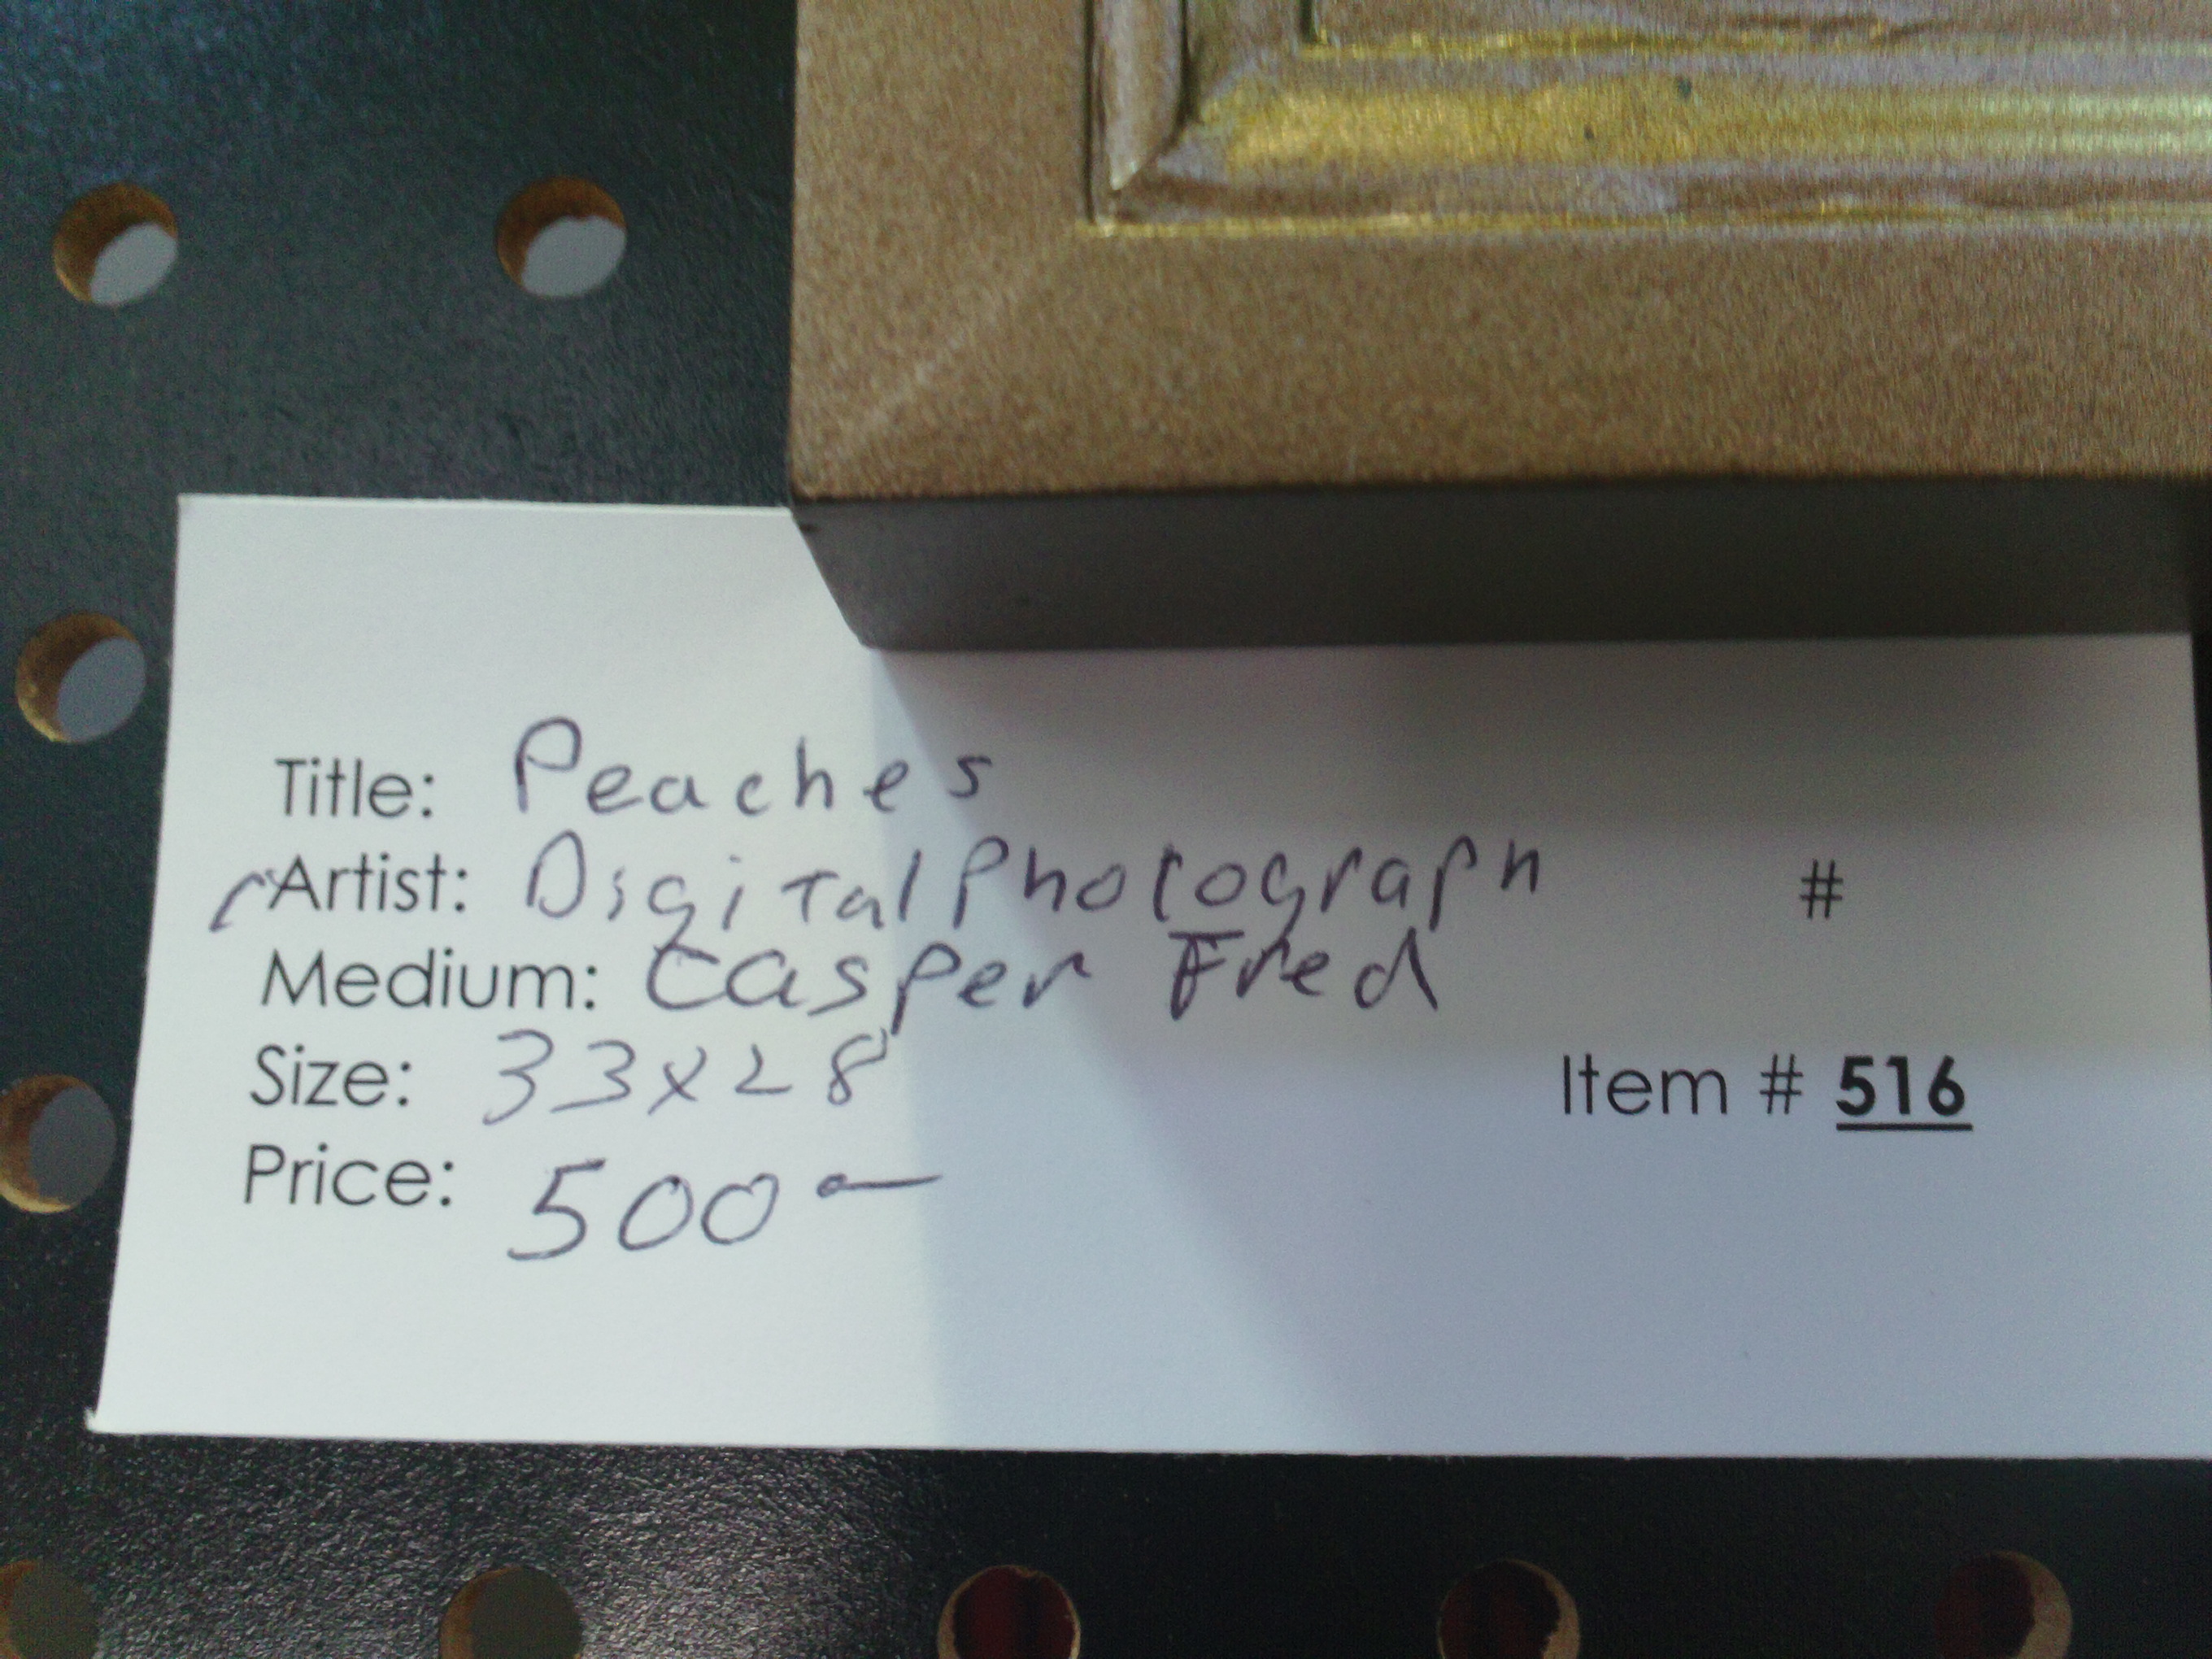 Title: Peaches
Artist: Digital Photograph
#
Medium: Casper Fred
Size: 33x28
Item # 516
Price: 500 —